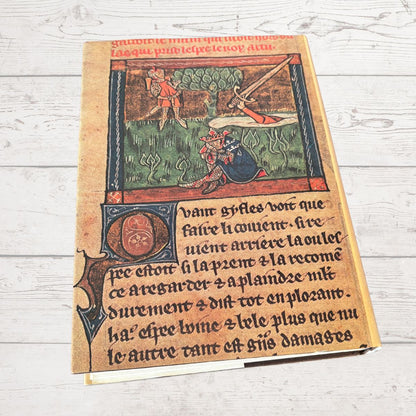 la q̃ que prist espee le roy artu.
Quant gyfles voit que
faire li couient. si re
uient arriere la ou les
pee estoit si la prent & la recom̃e
ce a regarder & a plaindre m̃lt
durement & dist tot en plorant.
ha.' espee boine & bele plus que nu
le autre tant est gñs damages